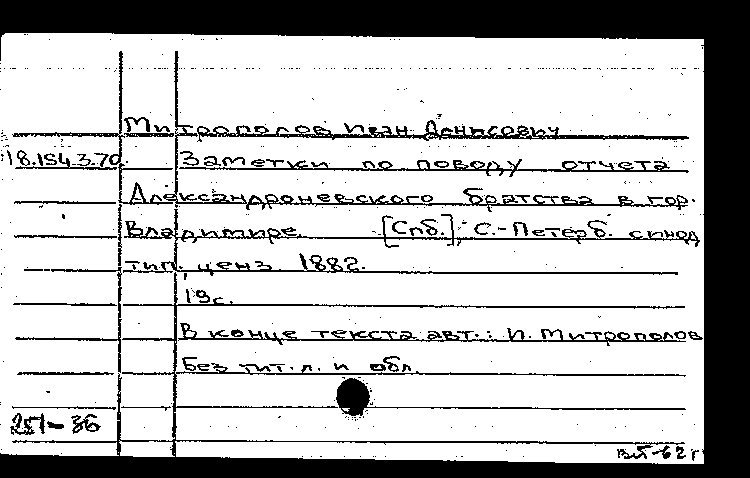 Митрополов, Иван Денисович
18.154.3.70. Заметки по поводу отчета
Александроневского братства в гор.
Владимире. [Спб.], С.-Петерб. синод
тип., ценз. 1882.
19с.
В конце текста авт.: И. Митрополов
Без тит. л. и обл.
251-86